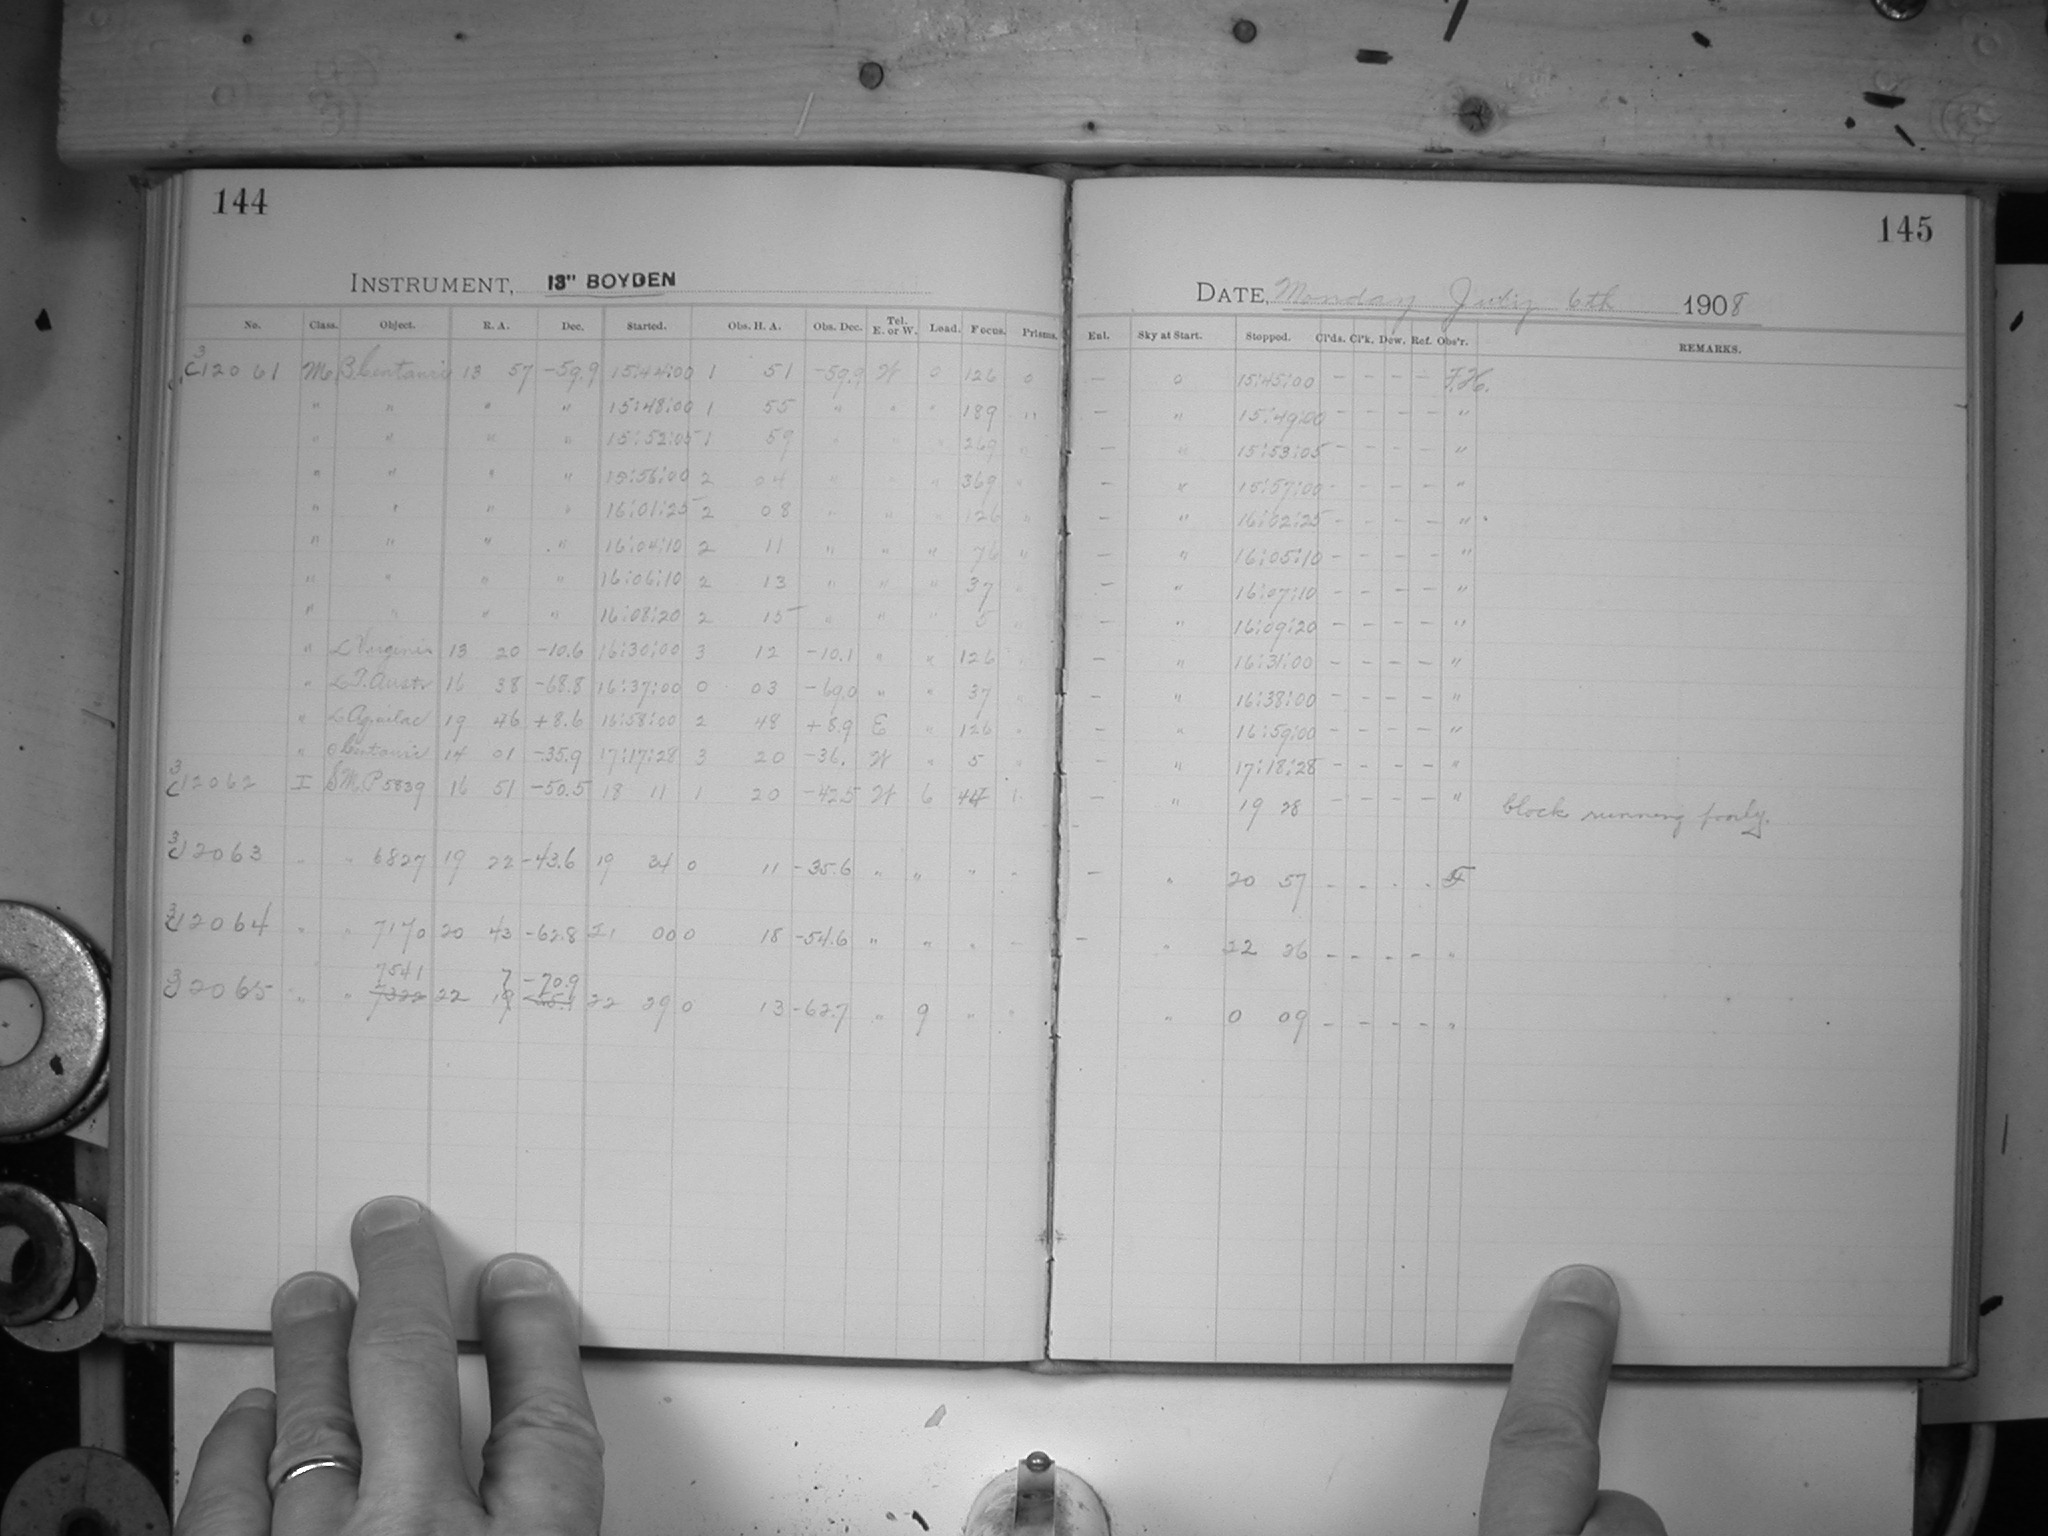 144
145
INSTRUMENT, 13" BOYDEN
DATE, Monday July 6th 1908
No. Class. Object. R. A. Dec. Started. Obs. H. A. Obs. Dec. Tel. E. or W. Load. Focus. Prisms. Enl. Sky at Start. Stopped. Cl'ds. Cl'k. Dew. Ref. Obs'r. REMARKS.
C12061 M B Centauri 13 57 -59.9 15:44:00 1 51 -59.9 W 0 126 0 — 0 15:45:00 - - - - F.H.
" " " " 15:48:00 1 55 " " " 189 " — " 15:49:00 - - - - "
" " " " 15:52:05 1 59 " " " 269 " — " 15:53:05 - - - - "
" " " " 15:56:00 2 04 " " " 369 " — " 15:57:00 - - - - "
" " " " 16:01:25 2 08 " " " 126 " — " 16:02:25 - - - - "
" " " " 16:04:10 2 11 " " " 76 " — " 16:05:10 - - - - "
" " " " 16:06:10 2 13 " " " 37 " — " 16:07:10 - - - - "
" " " " 16:08:20 2 15 " " " 5 " — " 16:09:20 - - - - "
" α Virginis 13 20 -10.6 16:30:00 3 12 -10.1 " " 126 " — " 16:31:00 - - - - "
" α T. Austr 16 38 -68.8 16:37:00 0 03 -69.0 " " 37 " — " 16:38:00 - - - - "
" α Aquilae 19 46 +8.6 16:58:00 2 48 +8.9 E " 126 " — " 16:59:00 - - - - "
" θ Centauri 14 01 -35.9 17:17:28 3 20 -36. W " 5 " — " 17:18:28 - - - - "
C12062 I S.M.P 5839 16 51 -50.5 18 11 1 20 -42.5 W 6 44 1 — " 19 28 - - - - " Clock running poorly.
C12063 " " 6827 19 22 -43.6 19 34 0 11 -35.6 " " " " — " 20 57 - - - - F
C12064 " " 7170 20 43 -62.8 21 00 0 18 -54.6 " " " — " 22 26 - - - - "
7541 7 -70.9
C12065 " " 7322 22 19 22 29 0 13 -62.7 " 9 " " " 0 09 - - - - "